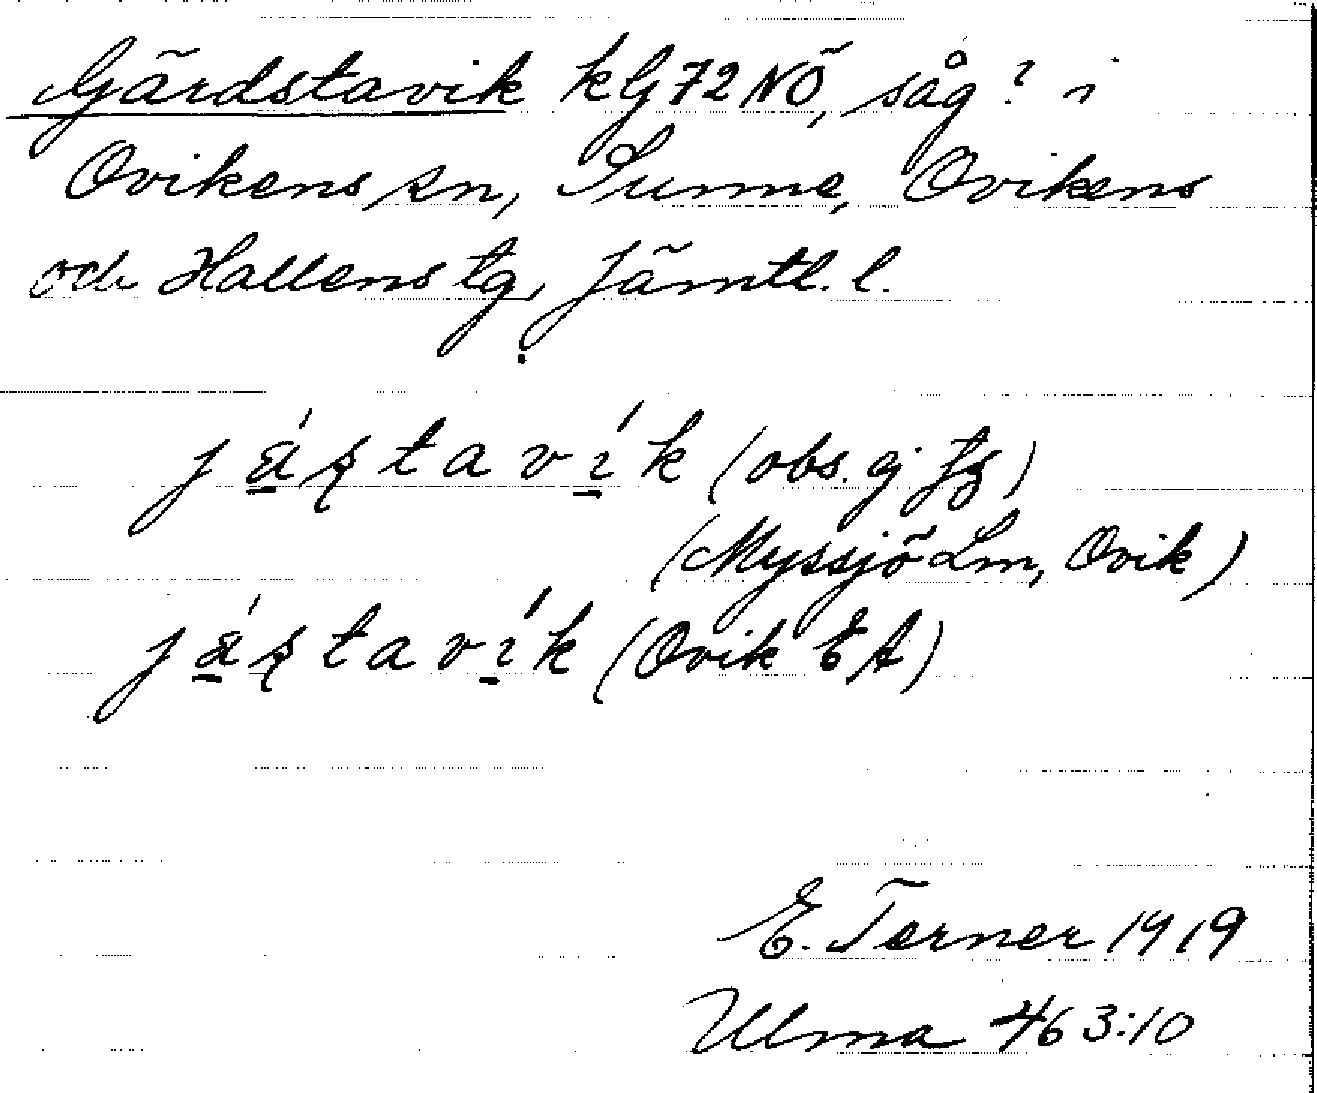 Gärdstavik kG72NÖ, såg? i
Ovikens sn, Sunne, Ovikens
och Hallens tg, Jämtl. l.
já̱ʂtaví̱k (obs. ej fʂ)
(Myssjö Lm, Ovik)
já̱ʂtaví̱k (Ovik EA)
E. Terner 1919
Ulma 463:10